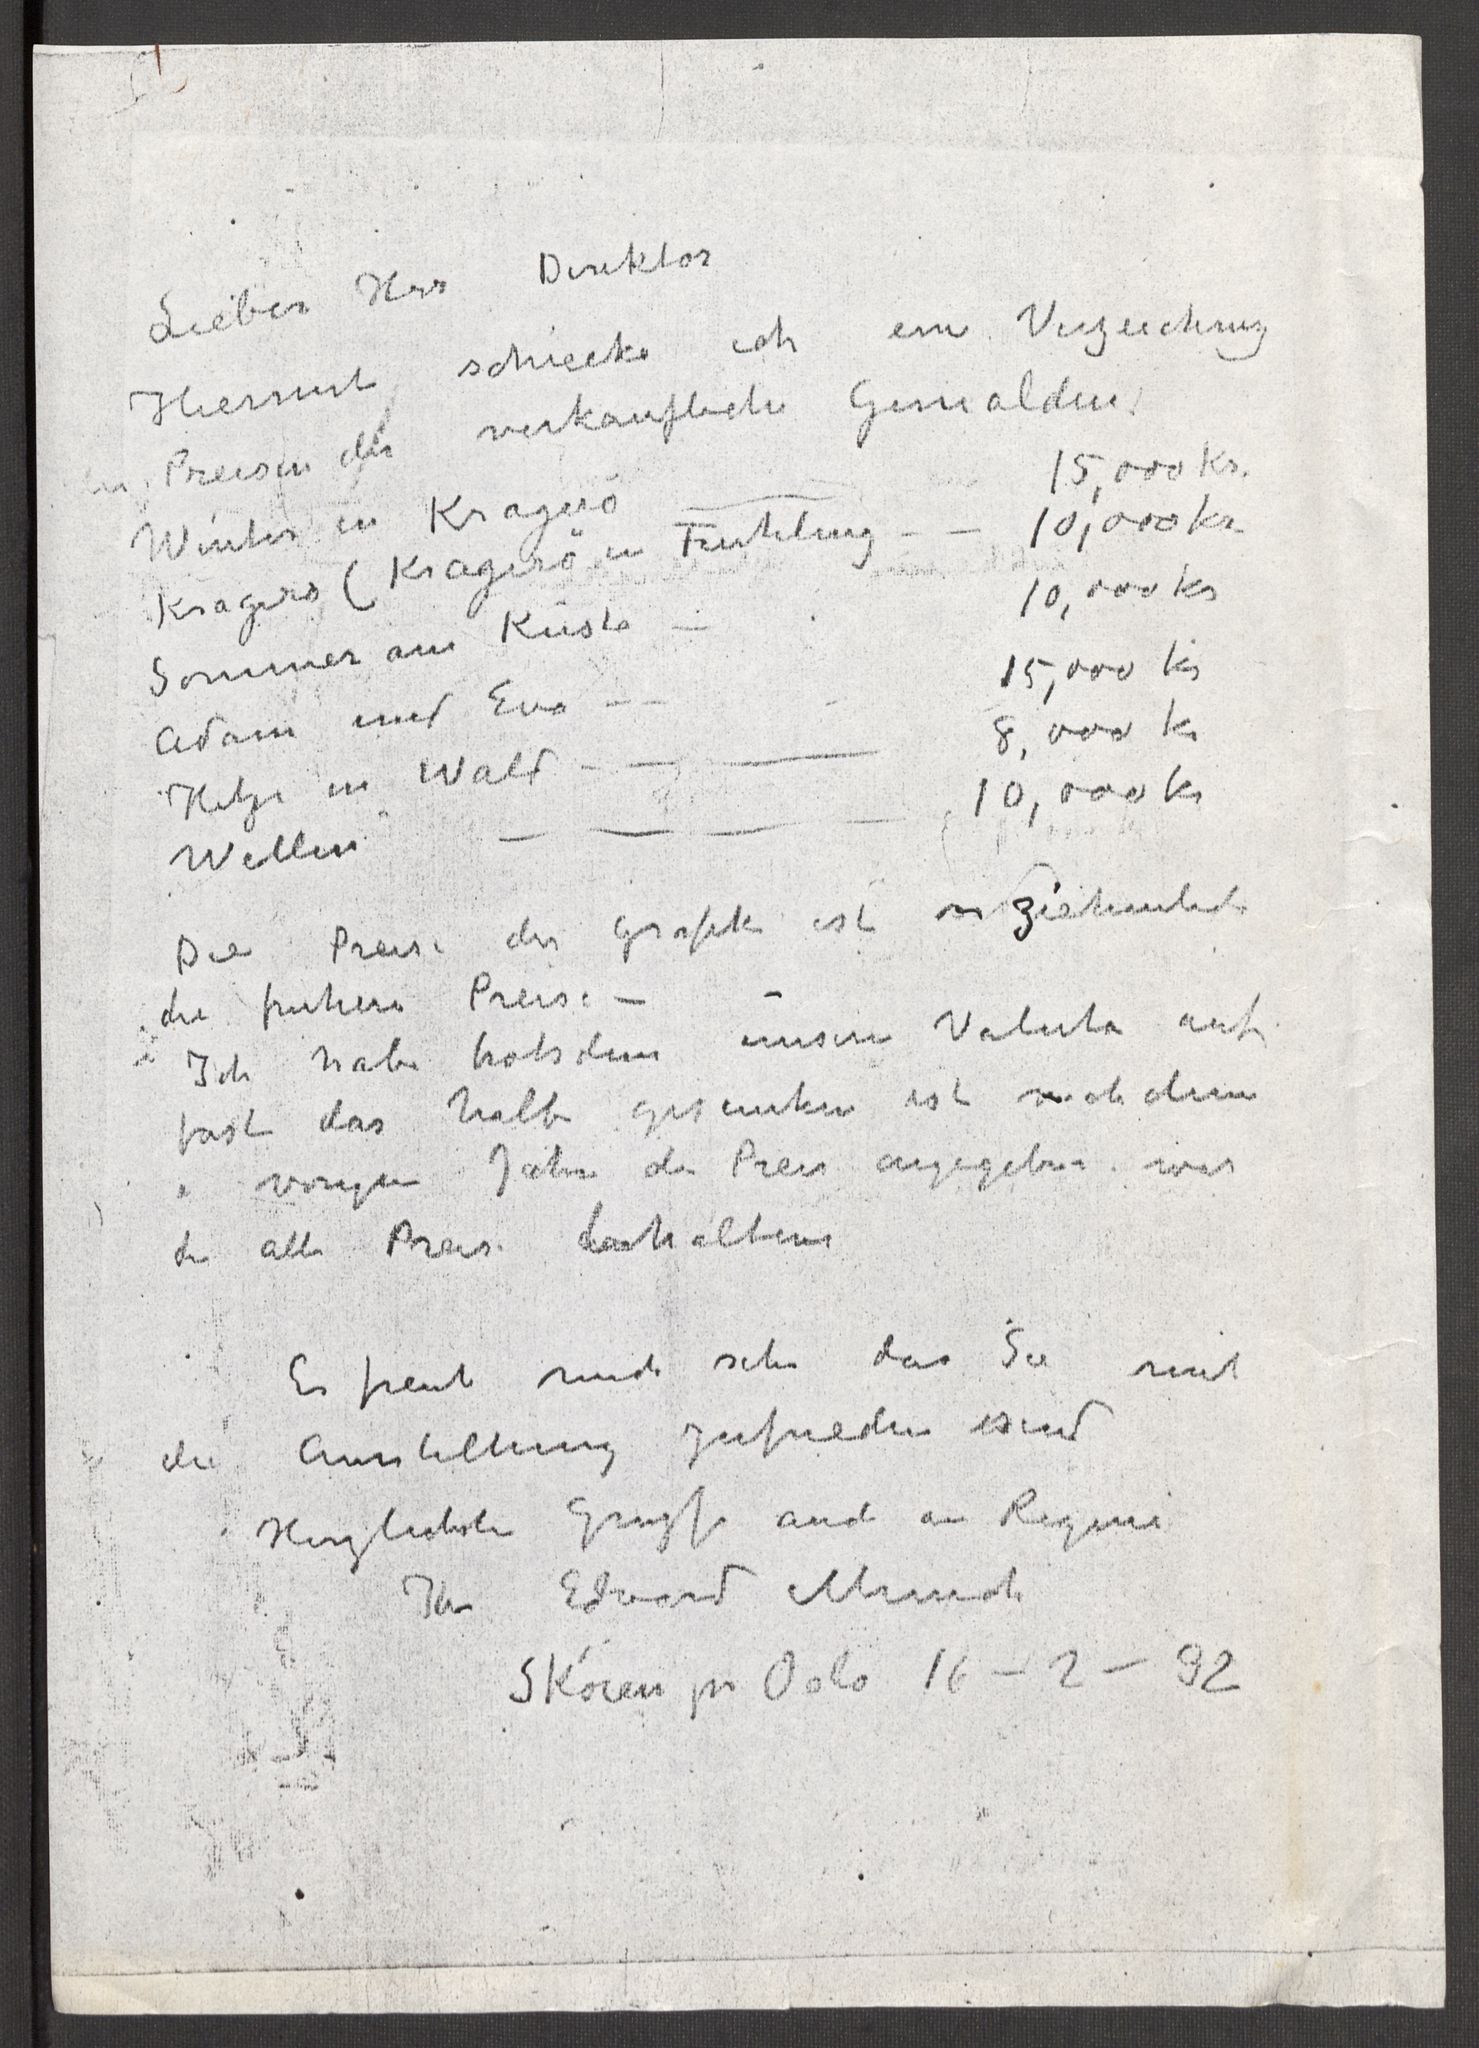 Lieber Herr Direktor
Hiermit schicke ich ein Verzeichnug
Preisen der verkaufliche Gemalden.
Winter in Kragerö 15,000 kr.
Kragerö (Kragerö in Fruhling – – 10,000 kr
Sommer am Küste – 10,000 kr
Adam und Eva – – 15,000 kr
in Wald – – 8,000 kr
Wellen – – – – 10,000 kr
Die Preise der Grafik ist ziehmlich
die fruhere Preise –
Ich habe trotsdem unsere Valuta auf
fast das halbe gesunken ist nach dem
vorigen Jahre die Preis angegeben war
die alte Preise
Es freut mich sehr das Sie mit
die Ausstellung zufrieden sind
Herzlichste Grusse auch an Regine
Ihr Edvard Munch
Sköien pr Oslo 16 – 2 – 32